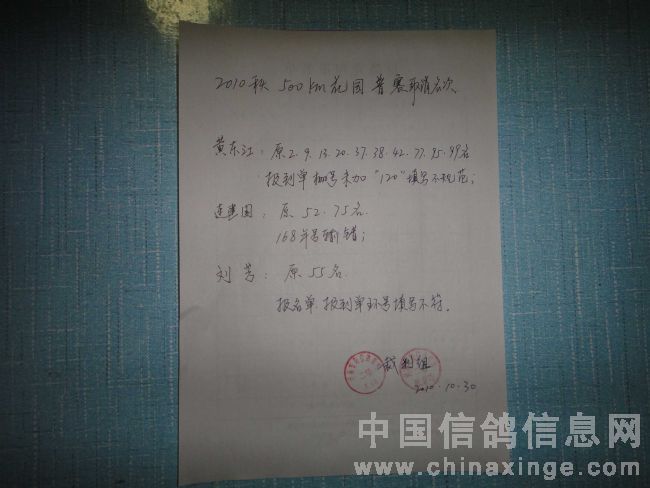 2010秋 500km花园普赛取消名次
黄东江：原2.9.13.20.37.38.42.77.95.99名
报到单棚号未加"120"填写不规范；
连建国：原52.75名.
168年号输错；
刘芳：原55名.
报名单.报到单环号填写不符。
裁判组
2010.10.30
中国信鸽信息网
www.chinaxinge.com